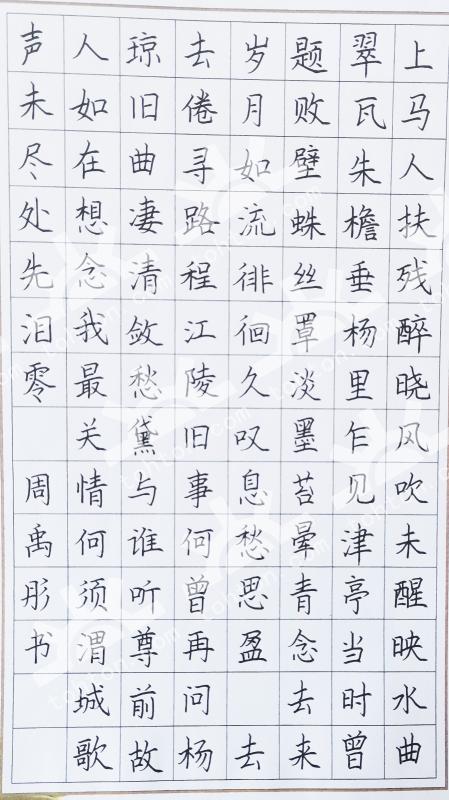 上马人扶残醉晓风吹未醒映水曲
翠瓦朱檐垂杨里乍见津亭当时曾
题败壁蛛丝罩淡墨苔晕青念去来
岁月如流徘徊久叹息愁思盈 去
去倦寻路程江陵旧事何曾再问杨
琼旧曲凄清敛愁黛与谁听尊前故
人如在想念我最关情何须渭城歌
声未尽处先泪零 周禹彤书